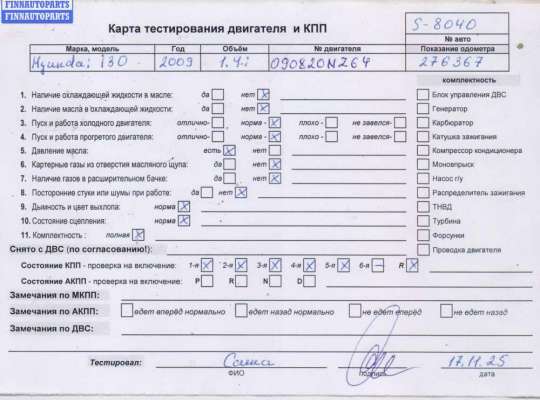 FINNAUTOPARTS
FINNAUTOPARTS
Карта тестирования двигателя и КПП
S-8040
№ авто
Марка, модель Год Объём № двигателя Показание одометра
Hyundai i30 2009 1.4i 090820NZ64 276367
комплектность
1. Наличие охлаждающей жидкости в масле: да нет X
Блок управления ДВС
2. Наличие масла в охлаждающей жидкости: да нет X
Генератор
3. Пуск и работа холодного двигателя: отлично- норма- X плохо- не завелся-
Карбюратор
4. Пуск и работа прогретого двигателя: отлично- норма- X плохо- не завелся-
Катушка зажигания
5. Давление масла: есть X нет
Компрессор кондиционера
6. Картерные газы из отверстия масляного щупа: да нет X
Моновпрыск
7. Наличие газов в расширительном бачке: да нет X
Насос г/у
8. Посторонние стуки или шумы при работе: да нет X
Распределитель зажигания
9. Дымность и цвет выхлопа: норма X
ТНВД
10. Состояние сцепления: норма X
Турбина
11. Комплектность : полная X
Форсунки
Снято с ДВС (по согласованию!):
Проводка двигателя
Состояние КПП - проверка на включение: 1-я X 2-я X 3-я X 4-я X 5-я X 6-я — R X
Состояние АКПП - проверка на включение: P R N D
Замечания по МКПП:
Замечания по АКПП: едет вперёд нормально едет назад нормально не едет вперёд не едет назад
Замечания по ДВС:
Тестировал: Саша 17.11.25
ФИО подпись дата